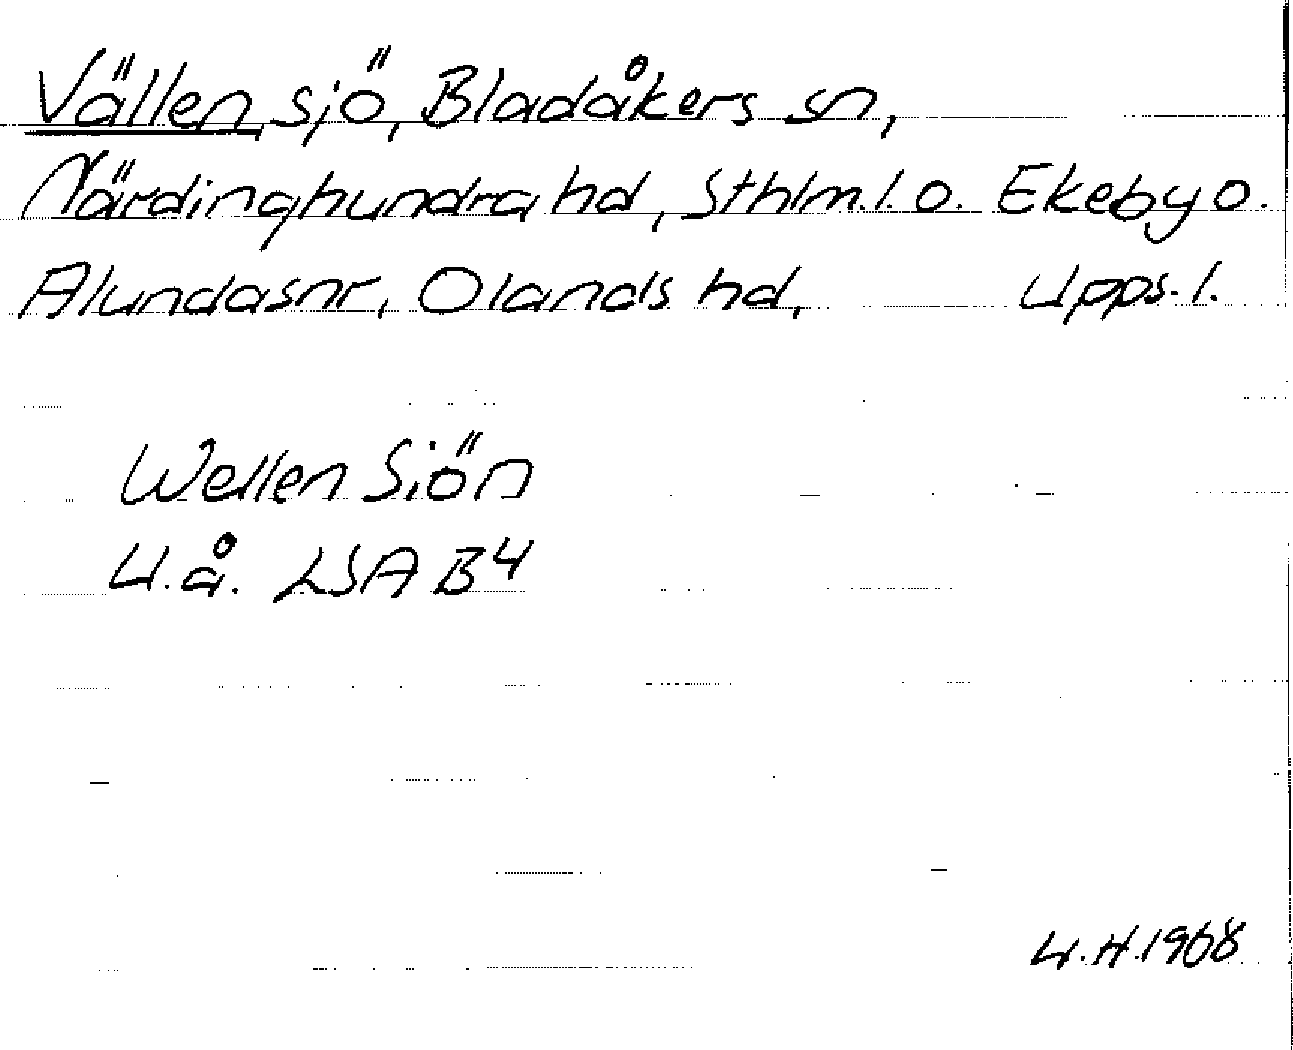 Vällen, sjö, Bladåkers sn,
Närdinghundra hd, Sthlm.l. o. Ekeby o.
Alunda snr, Olands hd, Upps. l.
Wellen Siön
U.å. LSA B4
U.H.1968